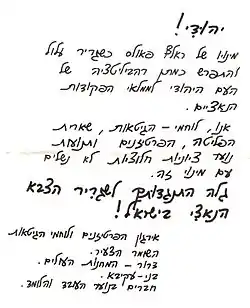 יהודי!
מינויו של ראלף פאולס כשגריר עלול
להתפרש כמתן רהביליטציה של
העם היהודי לממלאי הפקודות
הנאציים.
אנו, לוחמי-הגיטאות, שארית
הפליטה, הפרטזנים ותנועות
נוער ציוניות חלוציות לא נשלים
עם מינוי זה.
גלה התנגדותך לשגריר הצבא
הנאצי בישראל!
איגון הפרטיזנים ולוחמי הגיטאות
השומר הצעיר.
דרור - המחנות העולים.
בני-עקיבא.
חברים בנוער העובד והלומד.